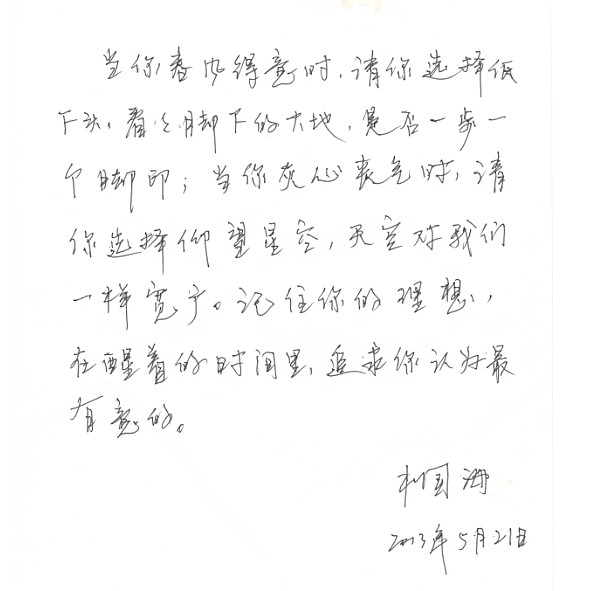 当你春风得意时，请你选择低
下头，看之脚下的大地，是否一步一
个脚印；当你灰心丧气时，请
你选择仰望星空，天空对我们
一样宽广。记住你的理想，
在醒着的时间里，追求你认为最
有意的。
国海
2013年5月21日